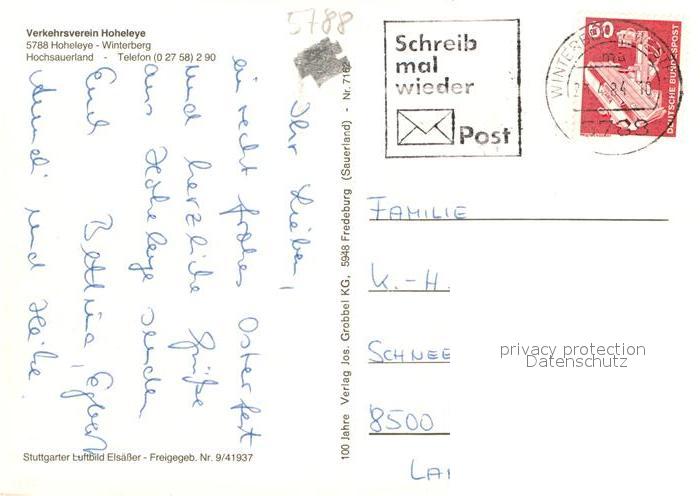 5788
Verkehrsverein Hoheleye
5788 Hoheleye - Winterberg
Hochsauerland - Telefon (0 27 58) 2 90
Ihr Lieben,
ein recht frohes Osterfest
und herzliche Grüße
aus Hoheleye senden
Euch Bettina, Egbert
und Heike
Stuttgarter Luftbild Elsäßer - Freigegeb. Nr. 9/41937
100 Jahre Verlag Jos. Grobbel KG, 5948 Fredeburg (Sauerland) - Nr. 7162
Schreib
mal
wieder
Post
WINTERBERG
4.84
5788
60
DEUTSCHE BUNDESPOST
FAMILIE
K.-H.
SCHNEE
privacy protection
Datenschutz
8500
LAI